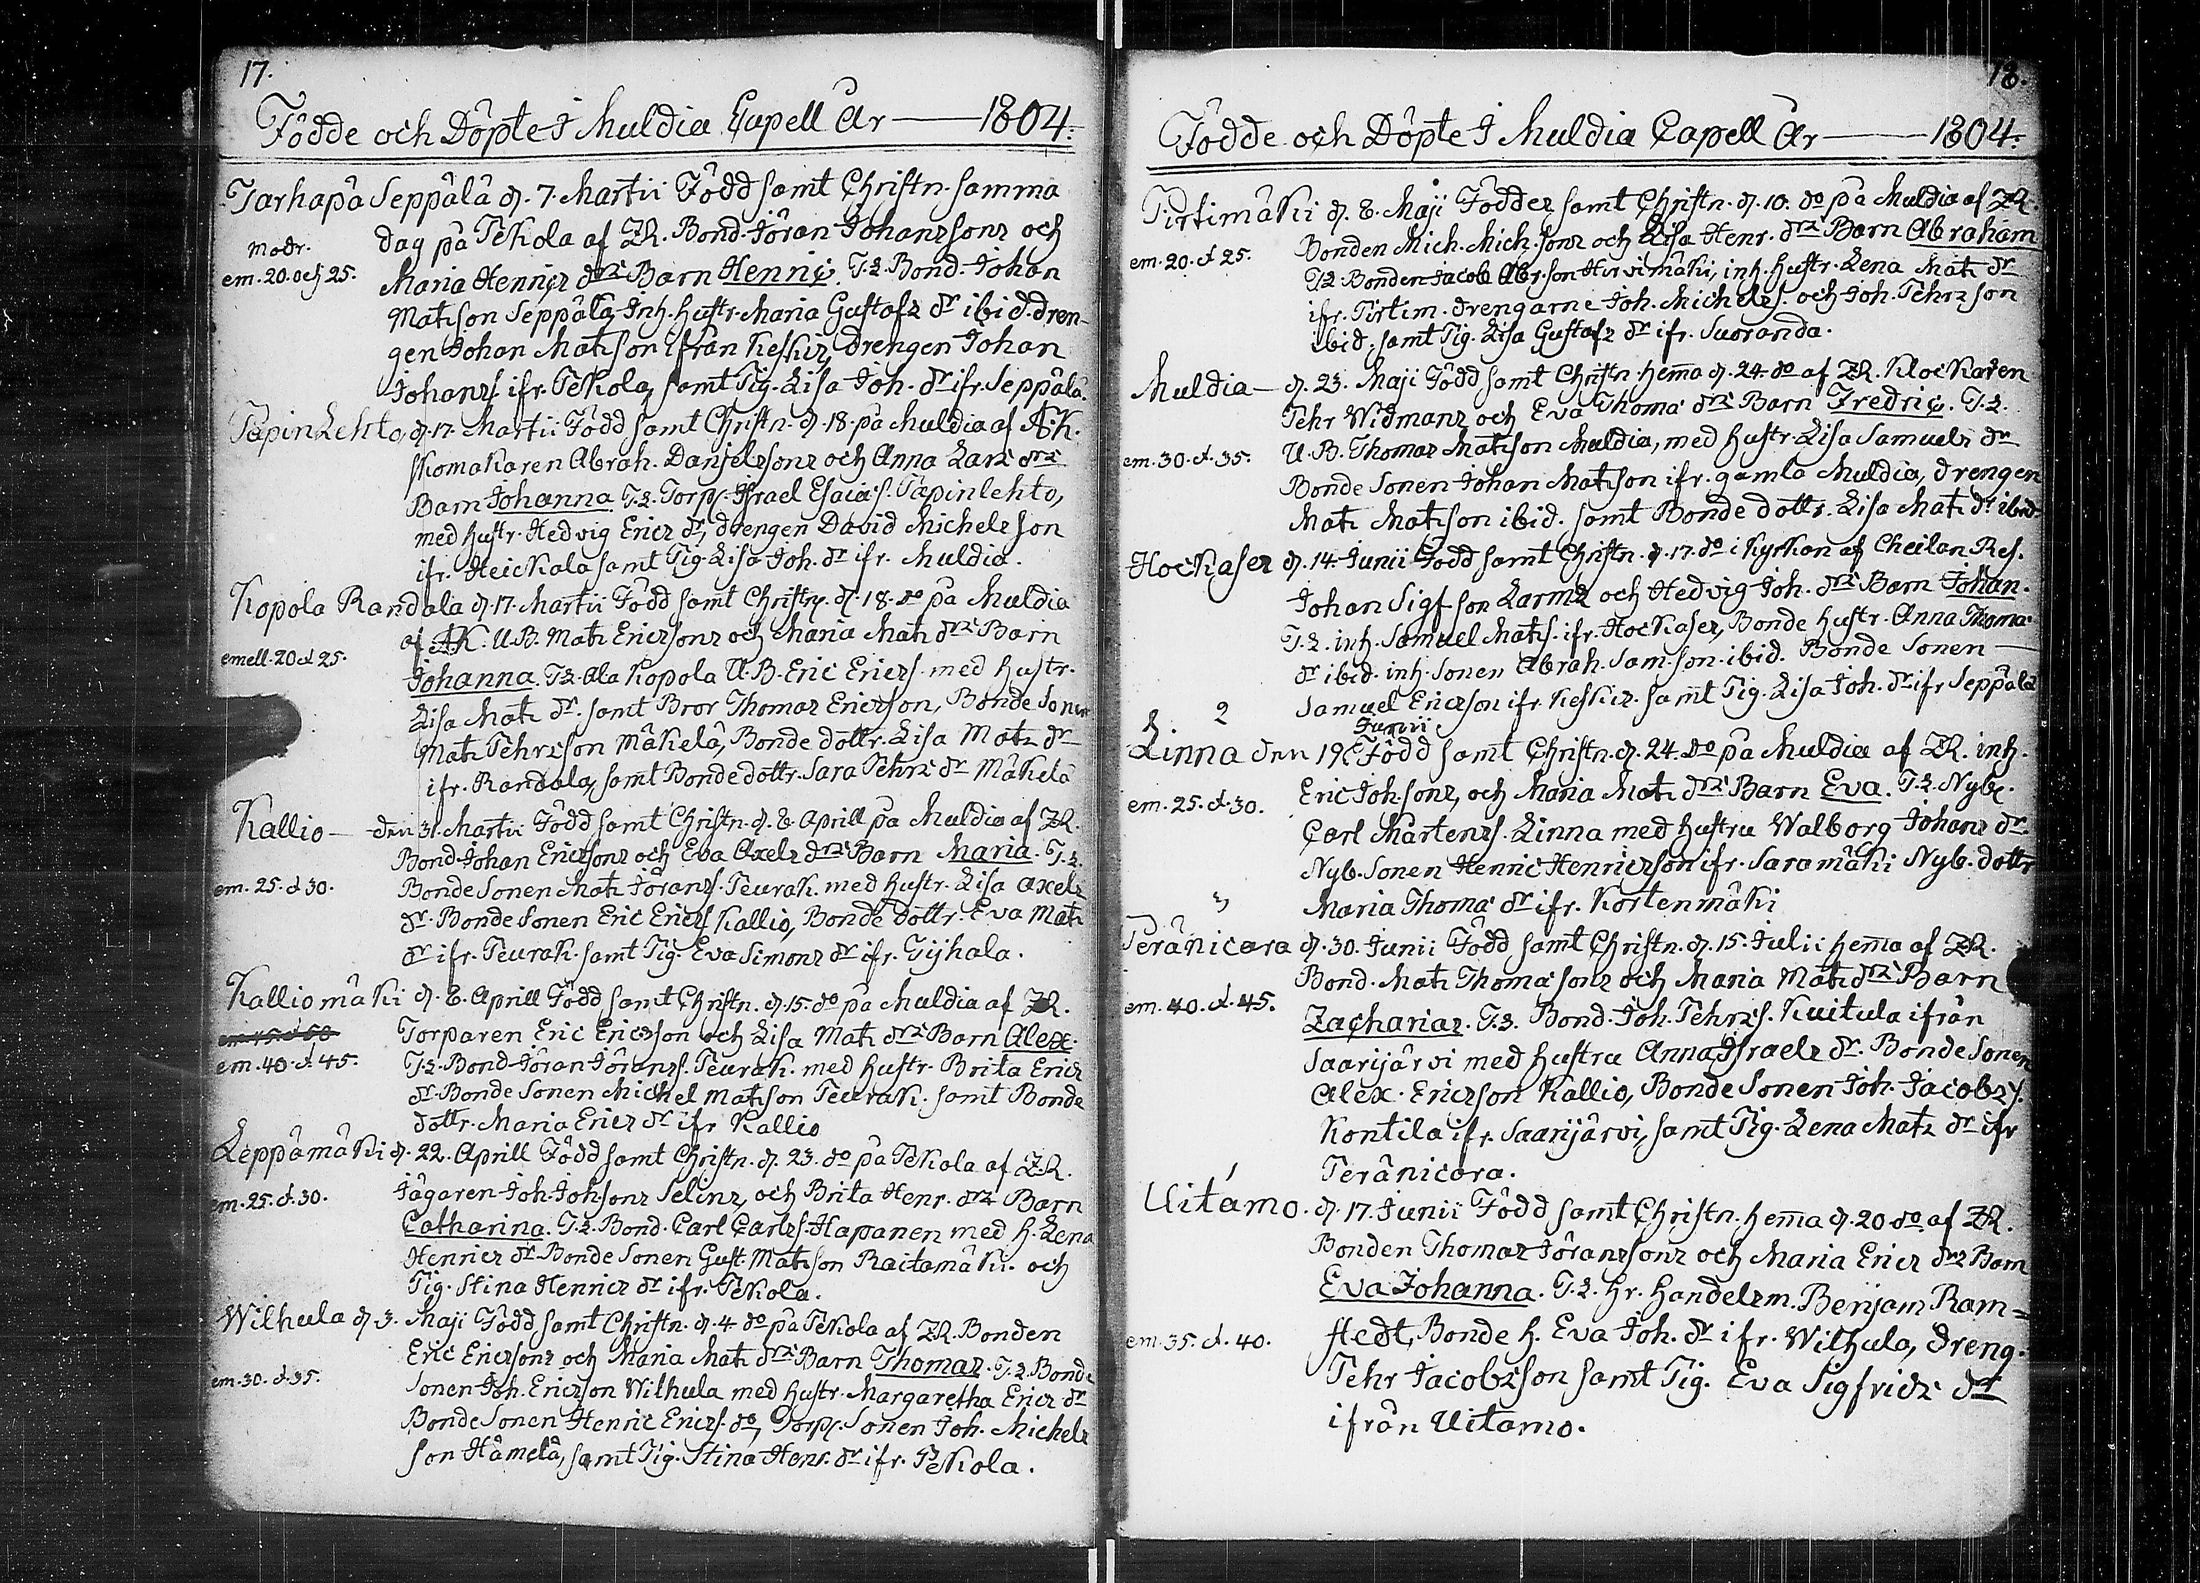 17.
Födde och Döpte I Muldia Capell År — 1804.
Tarhapä Seppälä d. 7. Martii Född samt Christn. samma
dag på Pekola af ZR. Bond. Jöran Johanssons och
Modr.
em. 20. och 25.
Maria Henrics drs Barn Henric. T.2. Bond. Johan
Matsson Seppälä, Inh. hustr. Maria Gustafs dr ibid. dren-
gen Johan Matsson ifrån Keskis, drengen Johan
Johans. ifr. Pekola, samt Pig. Lisa Joh. dr ifr. Seppälä.
Papinlehto, d. 17. Martii Född samt Christn. d. 18. på Muldia af AK.
skomakaren Abrah. Danielssons och Anna Lars drs
Barn Johanna T.2. Torp. Israel Esaias. Papinlehto,
med hustr. Hedvig Erics dr, drengen David Michelsson
ifr. Heickala samt Pig. Lisa Joh. dr ifr. Muldia.
Kopola Randala d. 17. Martii Född samt Christn. d. 18. do på Muldia
af AK. U.B. Mats Ericssons och Maria Mats drs Barn
emell. 20 et 25.
Johanna. T.2. Ala Kopola U.B. Eric Erics. med hustr.
Lisa Mats dr. samt Bror Thomas Ericsson, Bonde Sonen
Mats Pehrsson Mäkelä, Bonde dottr. Lisa Mats dr
ifr. Randala, samt Bonde dottr. Sara Pehrs dr Mäkelä
Kallio — den 31. Martii Född samt Christn. d. 8. Aprill på Muldia af ZR.
Bond. Johan Ericssons och Eva Axels drs Barn Maria. T.2.
em. 25. et 30.
Bonde Sonen Mats Jörans. Peurak. med hustr. Lisa Axels
dr. Bonde Sonen Eric Erics. Kallio, Bonde dottr. Eva Mats
dr ifr. Peurak. samt Pig. Eva Simons dr ifr. Tijhala.
Kalliomäki d. 8. Aprill Född samt Christn. d. 15. do på Muldia af ZR.
em. 45. et 50
Torparen Eric Ericsson och Lisa Mats drs Barn Alex.
em. 40 et 45.
T.2. Bond. Jöran Jörans. Peurak. med hustr. Brita Erics
dr. Bonde Sonen Michel Matsson Peurak. samt Bonde
dottr. Maria Erics dr ifr Kallio
Leppämäki d. 22. Aprill Född samt Christn. d. 23. do på Pekola af Z.R.
em. 25. et 30.
Jägaren Joh. Johssons Selins, och Brita Henr. drs Barn
Catharina. T.2. Bond. Carl Carls. Hapanen med h. Lena
Henrics dr. Bonde Sonen Gust. Matsson Raitamäki. och
Pig. Stina Henrics dr ifr. Pekola.
Wilhula d. 3. Maji Född samt Christn. d. 4. do på Pekola af ZR. Bonden
Eric Ericssons och Maria Mats drs Barn Thomas. T.2. Bonde
em. 30. et 35.
Sonen Joh. Ericsson Wilhula med hustr. Margaretha Erics dr
Bonde Sonen Henric Erics. do, Torp. Sonen Joh. Michels
son Hämelä, samt Pig. Stina Henr. dr ifr. Pekola.
18.
Födde och Döpte I Muldia Capell År — 1804.
Pirtimäki d. 8. Maji Födder samt Christn. d. 10. do på Muldia af ZR.
Bonden Mich. Mich.sons och Lisa Henr. drs Barn Abraham
em. 20. et 25.
T.2. Bonden Jacob Abr.son Hirvimäki, inh. hustr. Lena Mats dr
ifr. Pirtim. drengarne Joh. Michels. och Joh. Pehrsson
ibid. samt Pig. Lisa Gustafs dr ifr. Suoranda.
Muldia — d. 23. Maji Född samt Christn hema d. 24. do af ZR. Klockaren
Pehr Widmans och Eva Thoma drs Barn Fredric. T.2.
em. 30. et. 35.
U.B. Thomas Matsson Muldia, med hustr. Lisa Samuels dr
Bonde Sonen Johan Matsson ifr. gamla Muldia, drengen
Mats Matsson ibid. samt Bonde dottr. Lisa Mats dr ibid.
Hockaser d. 14. Junii Född samt Christn. d. 17. do i kyrkan af Cheilan Res.
Johan Sigf.son Larms och Hedvig Joh. drs Barn Johan.
T.2. inh. Samuel Mats. ifr. Hockaser, Bonde hustr. Anna Thoma
dr ibid. inh. Sonen Abrah. Sam.son ibid. Bonde Sonen —
Samuel Ericsson ifr. Keskis. samt Pig. Lisa Joh. dr ifr Seppälä
2
Junii
Linna den 19 Född samt Christn. d. 24. do på Muldia af ZR. inh.
Eric Joh.sons, och Maria Mats drs Barn Eva. T.2. Nyby.
em. 25. et. 30.
Carl Mårtens. Linna med hustru Walborg Johans dr.
Nyb. Sonen Henric Henricsson ifr. Saramäki Nyb. dottr
3
Maria Thoma dr ifr. Kortenmäki
Peränicara d. 30. Junii Född samt Christn. d. 15. Julii hema af ZR.
Bond. Mats Thoma sons och Maria Mats drs Barn
em. 40. et. 45.
Zacharias. T.3. Bond. Joh. Pehrs. Kuitula ifrån
Saarijärvi med hustru Anna Israels dr. Bonde Sonen
Alex. Ericsson Kallio, Bonde Sonen Joh. Jacobs.
Kontila ifr. Saarijärvi, samt Pig. Lena Mats dr ifr
Peränicara.
1
Uitamo. d. 17. Junii Född samt Christn. hema d. 20 do. af ZR.
Bonden Thomas Göranssons och Maria Erics drs Barn
Eva Johanna. T.2. Hr. Handelsm. Benjam Ram=
em. 35. et. 40.
stedt, Bonde h. Eva Joh. dr ifr. Wilhula, dreng.
Pehr Jacobsson samt Pig. Eva Sigfrids dr
ifrån Uitamo.